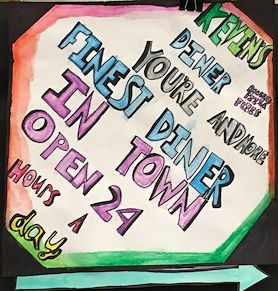 KEVIN'S
DINER
YOU'RE
FINEST DINER
IN TOWN
OPEN 24
HOURS A
day
AND MORE